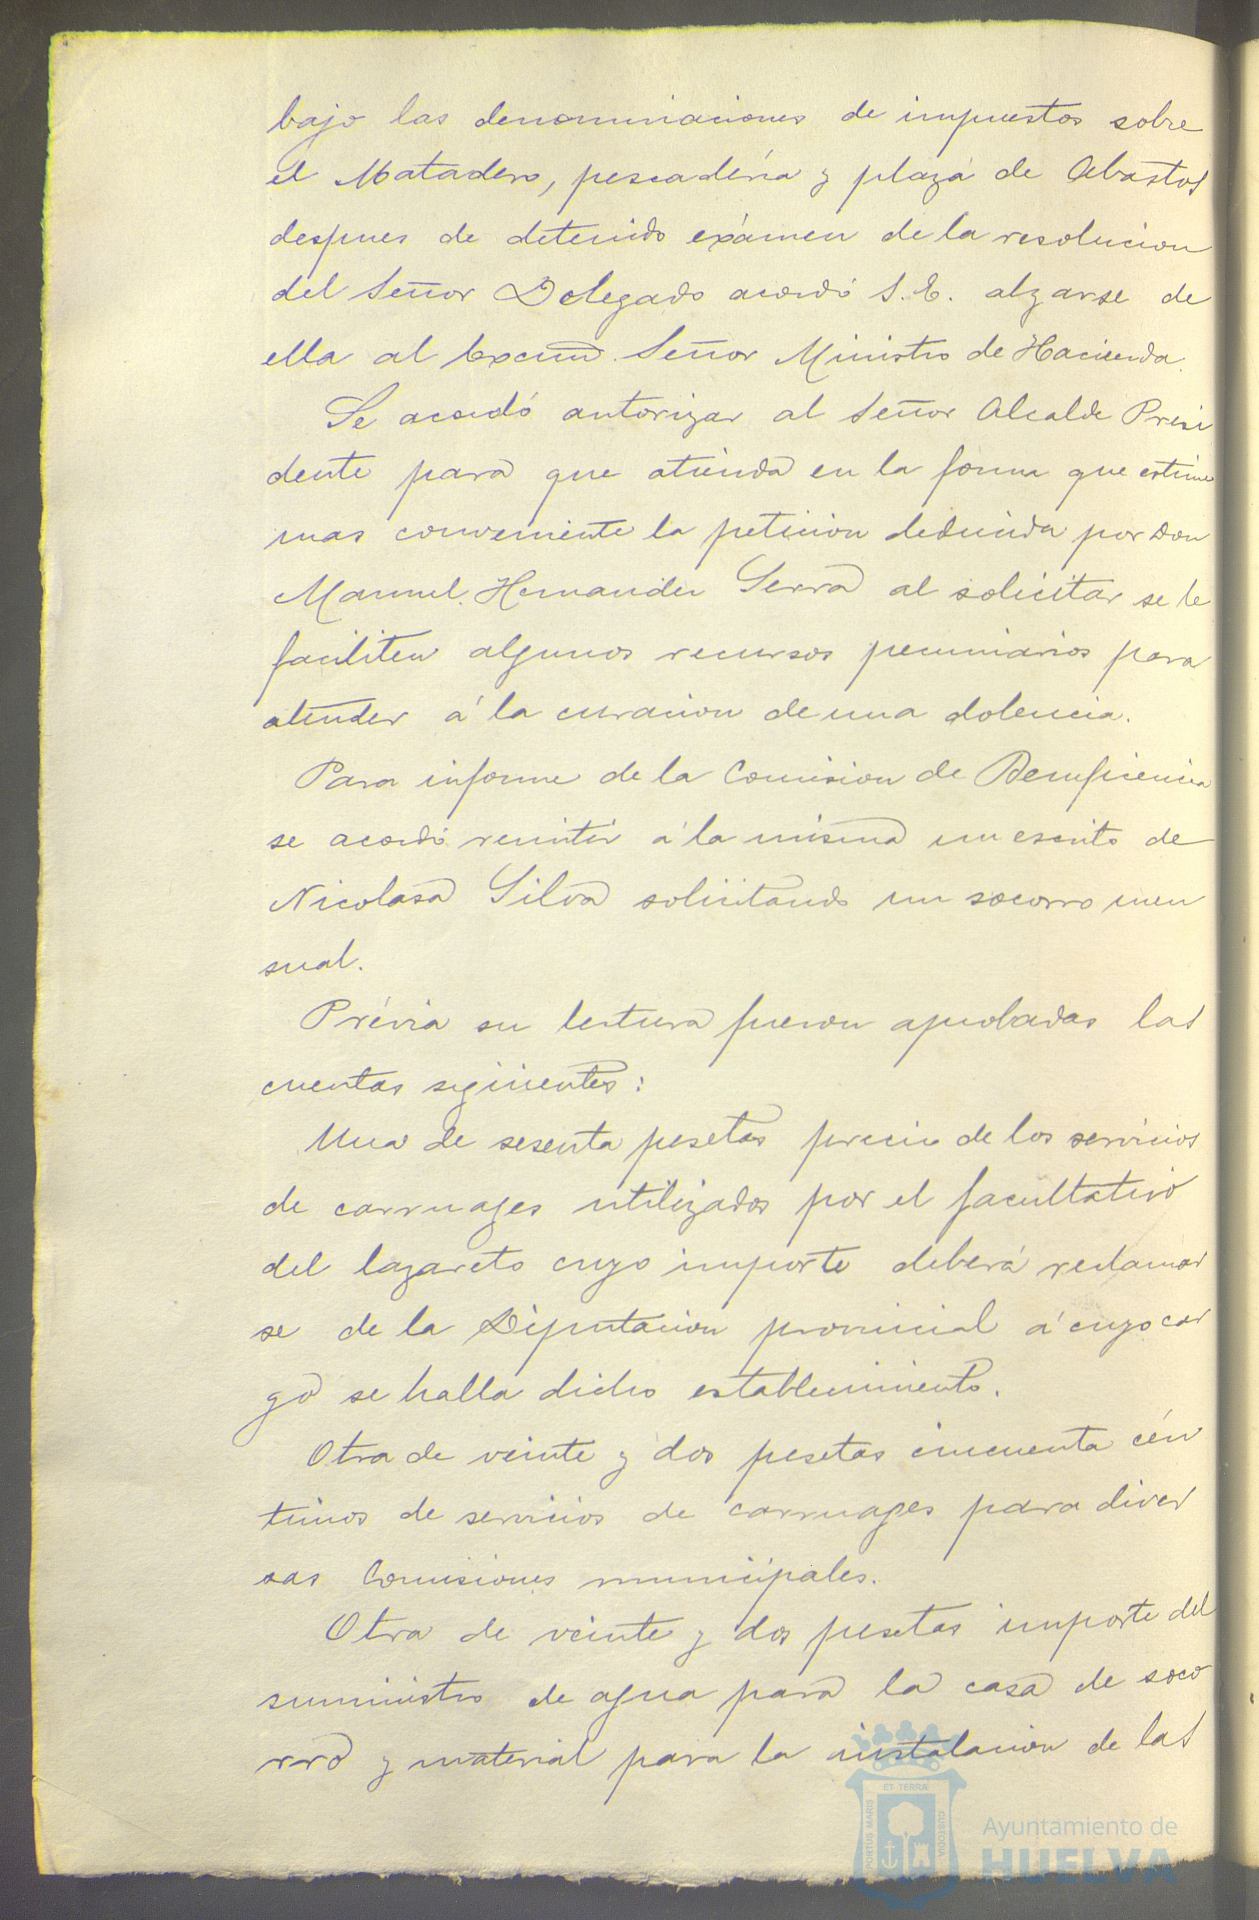 bajo las denominaciones de impuestos sobre
el Matadero, pescadéria y plaza de Abastos
despues de detenido exámen de la resolucion
del Señor Delegado acordó S. E. alzarse de
ella al Excmo. Señor Ministro de Hacienda.
Se acordó autorizar al Señor Alcalde Presi
dente para que atienda en la forma que estime
mas conveniente la peticion deducida por Don
Manuel Hernandez Serra al solicitar se le
faciliten algunos recursos pecuniarios para
atender á la curacion de una dolencia.
Para informe de la Comision de Beneficencia
se acordó remitir á la misma un escrito de
Nicolasa Silva solicitando un socorro men
sual.
Prévia su lectura fueron aprobadas las
cuentas siguientes:
Una de sesenta pesetas precio de los servicios
de carruages utilizados por el facultativo
del lazareto cuyo importe deberá reclamar
se de la Diputacion provincial á cuyo car
go se halla dicho establecimiento.
Otra de veinte y dos pesetas cincuenta cén
timos de servicios de carruages para diver
sas Comisiones municipales.
Otra de veinte y dos pesetas importe del
suministro de agua para la casa de soco
rro y material para la instalacion de las
PORTUS MARIS
ET TERRA
CUSTODIA
Ayuntamiento de
HUELVA